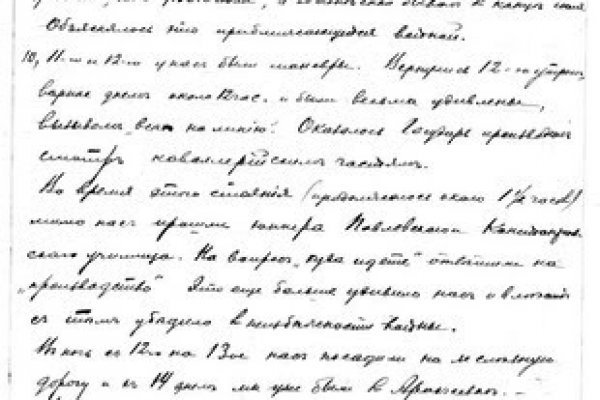 Объяснялось это приближающейся войной.
10, 11-го и 12-го у нас были маневры. Вернулись 12-го утром,
вернее днем около 12 час. и были весьма удивлены,
вызовом „всех на линию". Оказалось Государь производил
смотр кавалерийским частям.
Во время этого стояния (продолжалось около 1 1/2 часов)
мимо нас прошли юнкера Павловского
училища. На вопрос „куда идете" отвечали на
„производство" Это еще больше удивило нас и
с тем убедило в неизбежности войны.
В ночь с 12го на 13ое нас посадили на железную
дорогу и 14 днем мы уже были в